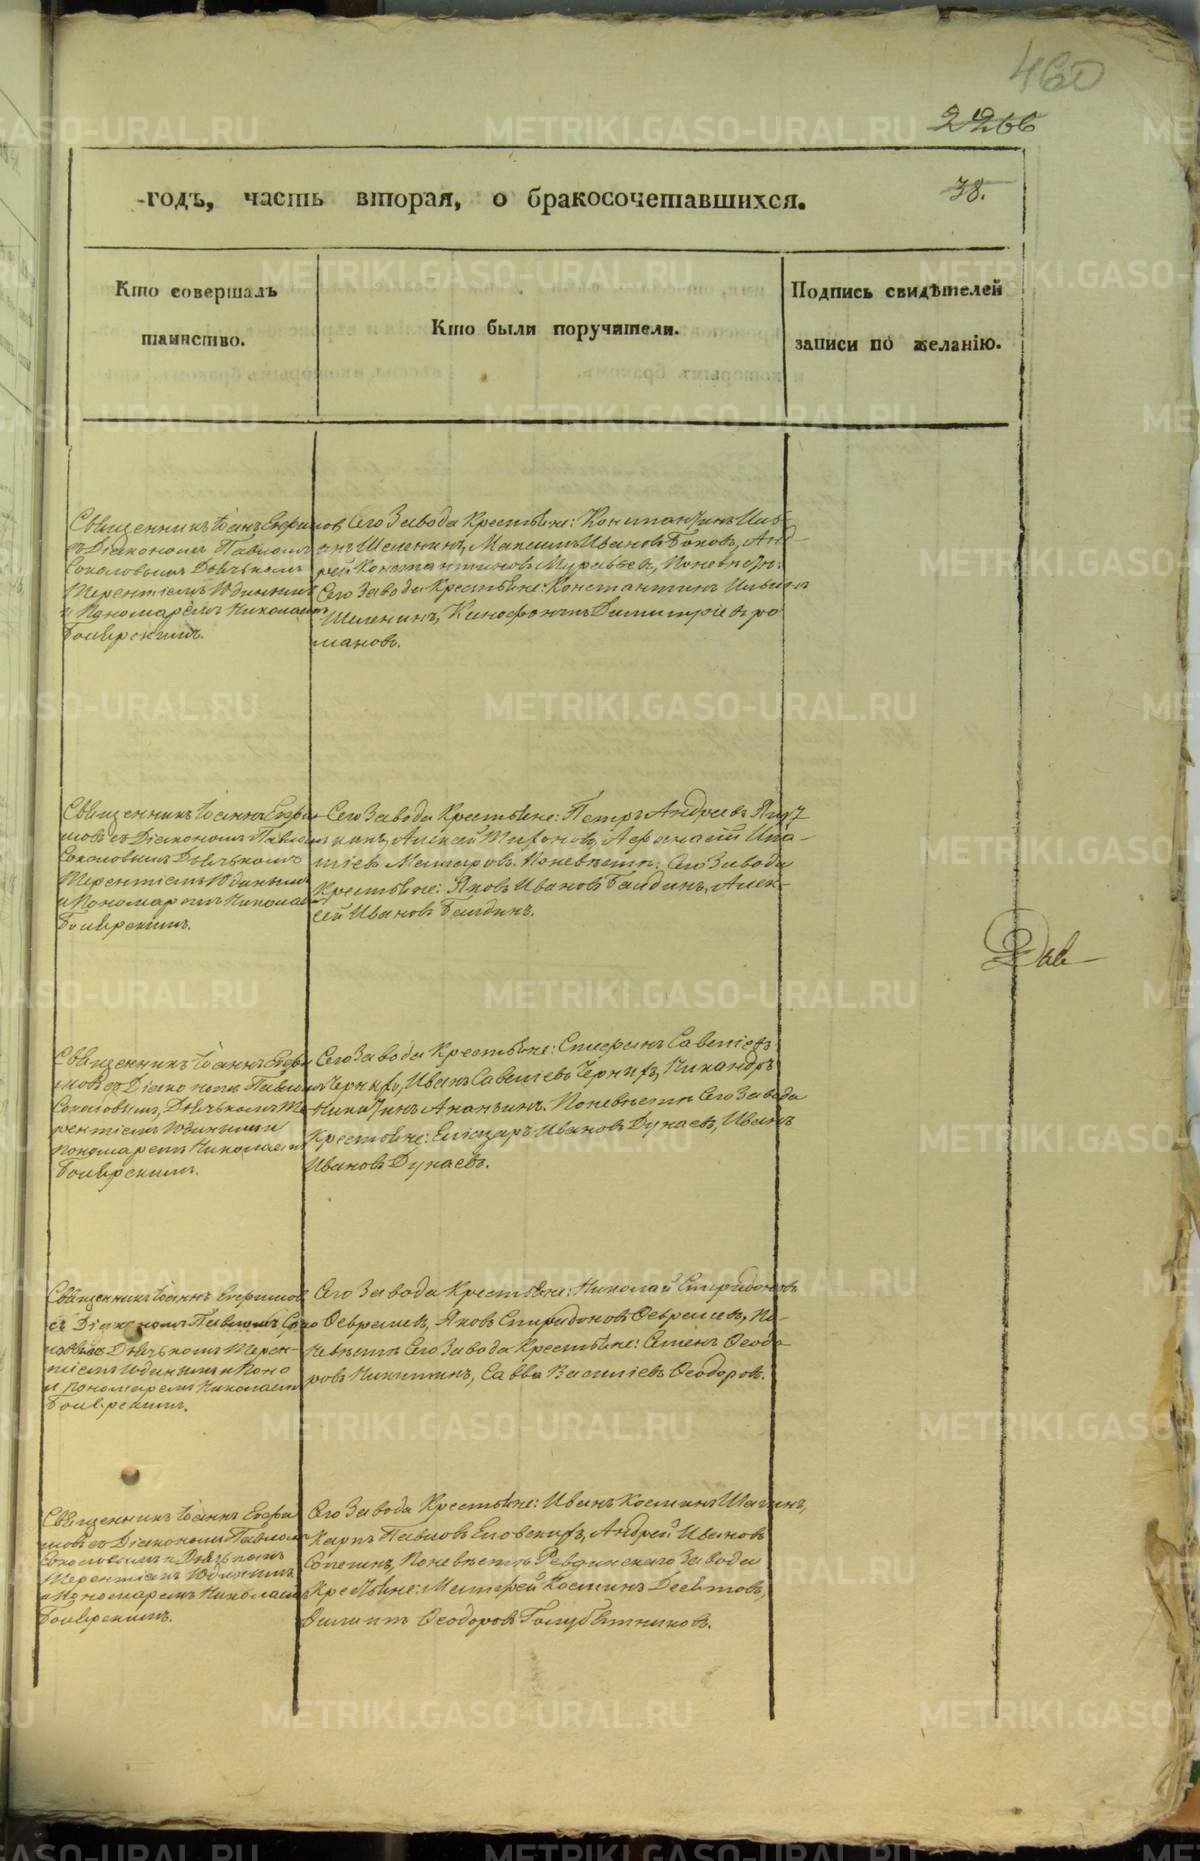 460
2266
-годъ, часть вторая, о бракосочетавшихся.
38.
Кто совершалъ
таинство.
Кто были поручители.
Подпись свидѣтелей
записи по желанію.
Священникъ Іоаннъ Ефимовъ
съ Діакономъ Павломъ
Соколовымъ Дьячькомъ
Терентіемъ Юдинымъ
и Пономаремъ Николаемъ
Боярскимъ.
Сего Завода Крестьяне: Константинъ Ильинъ
Шеленинъ, Максимъ Ивановъ Боковъ, Анд-
рей Константиновъ Муравьевъ, Поневѣстѣ:
Сего Завода Крестьяне: Константинъ Ильинъ
Шеленинъ, Димитріевъ Ро
мановъ.
Священникъ Іоаннъ Ефи-
мовъ съ Діакономъ Павломъ
Соколовымъ Дьячькомъ
Терентіемъ Юдинымъ
и Пономаремъ Николаемъ
Боярскимъ.
Сего Завода Крестьяне: Петръ Андреевъ
Алексей Тифоновъ, Афанасій Ипа-
тіевъ Поневѣстѣ: Сего Завода
Крестьяне: Яковъ Ивановъ Балдинъ, Алек-
сей Ивановъ Балдинъ.
Дав
Священникъ Іоаннъ Ефи
мовъ съ Діакономъ Павломъ
Соколовымъ, Дьячькомъ Те-
рентіемъ Юдинымъ и
пономаремъ Николаемъ
Боярскимъ.
Сего Завода Крестьяне: Стефанъ Савеліевъ
Черныхъ, Иванъ Савеліевъ Черныхъ, Никандръ
Никитинъ Ананьинъ. Поневѣстѣ Сего Завода
Крестьяне: Еліазаръ Ивановъ Дунаевъ, Иванъ
Ивановъ Дунаевъ.
Священникъ Іоаннъ Ефимовъ
съ Діакономъ Павломъ Соко
ловымъ Дьячькомъ Терен-
тіемъ Юдинымъ и Поно
и пономаремъ Николаемъ
Боярскимъ.
Сего Завода Крестьяне: Николай Спиридоновъ
Ѳевралевъ, Яковъ Спиридоновъ Ѳевралевъ, По-
невѣстѣ Сего Завода Крестьяне: Семенъ Ѳеодо
ровъ Никитинъ, Савва Василіевъ Ѳеодоровъ.
Священникъ Іоаннъ Ефи
мовъ съ Діакономъ Павломъ
Соколовымъ и Дьячькомъ
Терентіемъ Юдинымъ
и Пономаремъ Николаемъ
Боярскимъ.
Сего Завода Крестьяне: Иванъ Косминъ Шагинъ,
Карпъ Павловъ Еловскихъ, Андрей Ивановъ
Сопегинъ, Поневѣстѣ Ревдинскаго Завода
Крестьяне: Матфей Косминъ Десятовъ,
Филиппъ Ѳеодоровъ Голубятниковъ.
METRIKI.GASO-URAL.RU